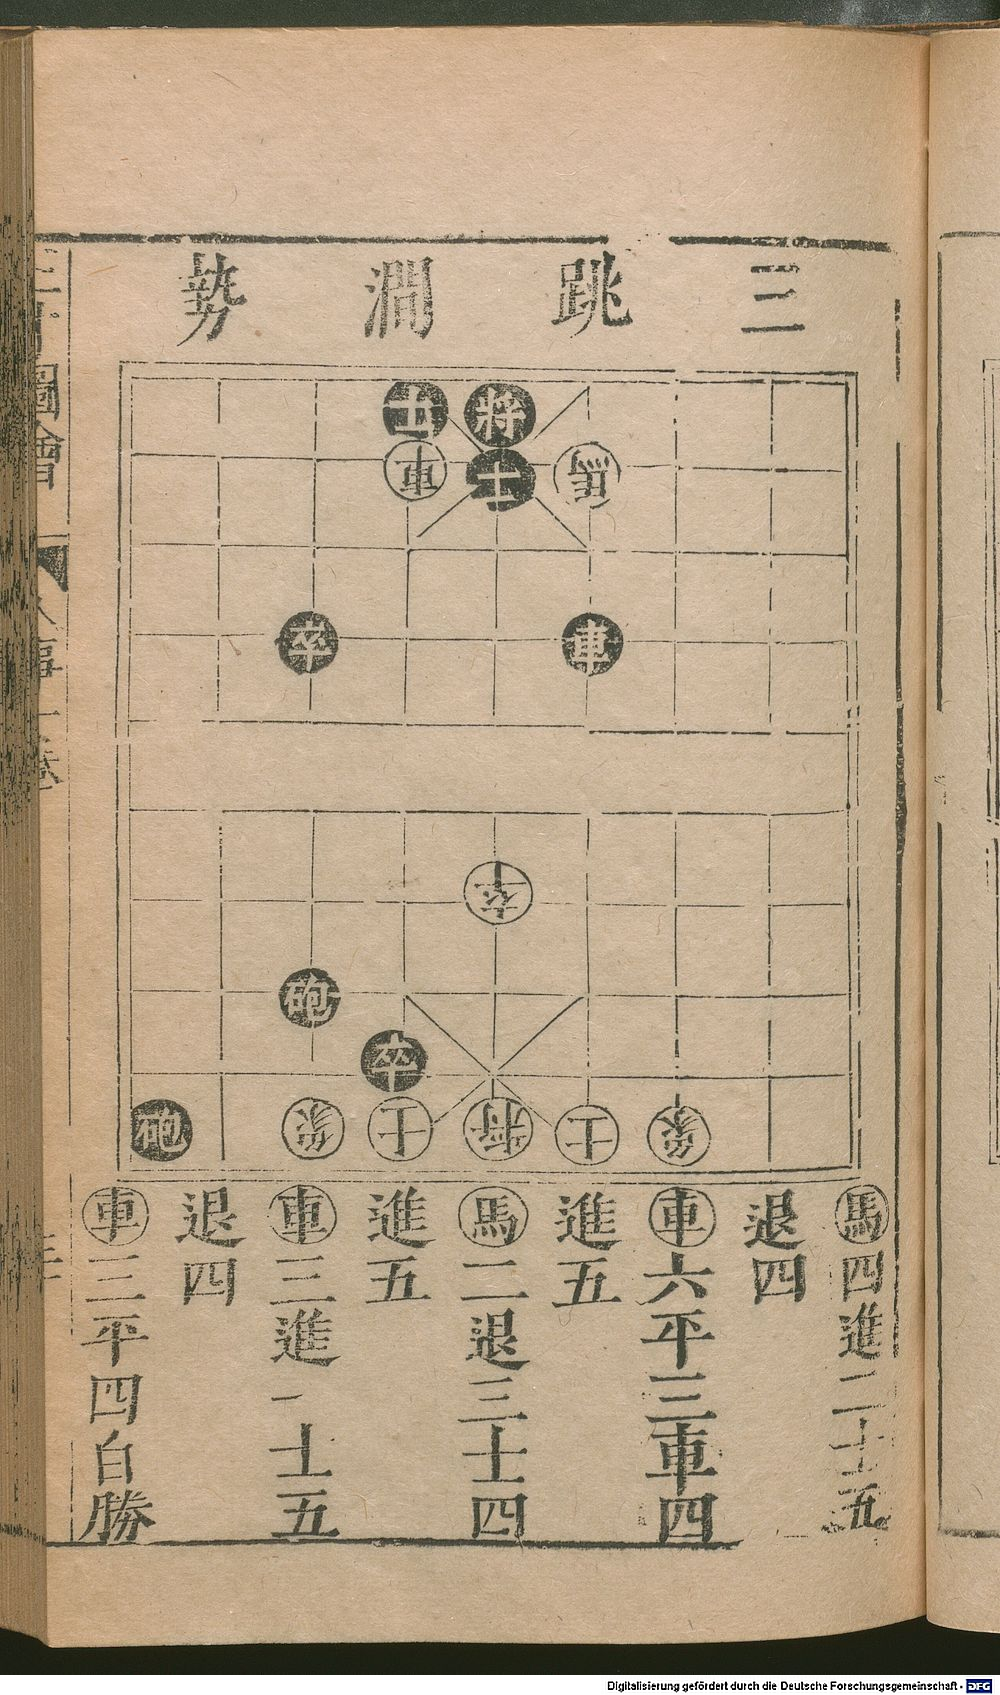 三跳澗勢
士將
車士馬
卒車
卒
砲
卒
砲象士將士象
馬四進二士五
退四
車六平三車四
進五
馬二退三士四
進五
車三進一士五
退四
車三平四白勝
圖會
Digitalisierung gefördert durch die Deutsche Forschungsgemeinschaft - DFG